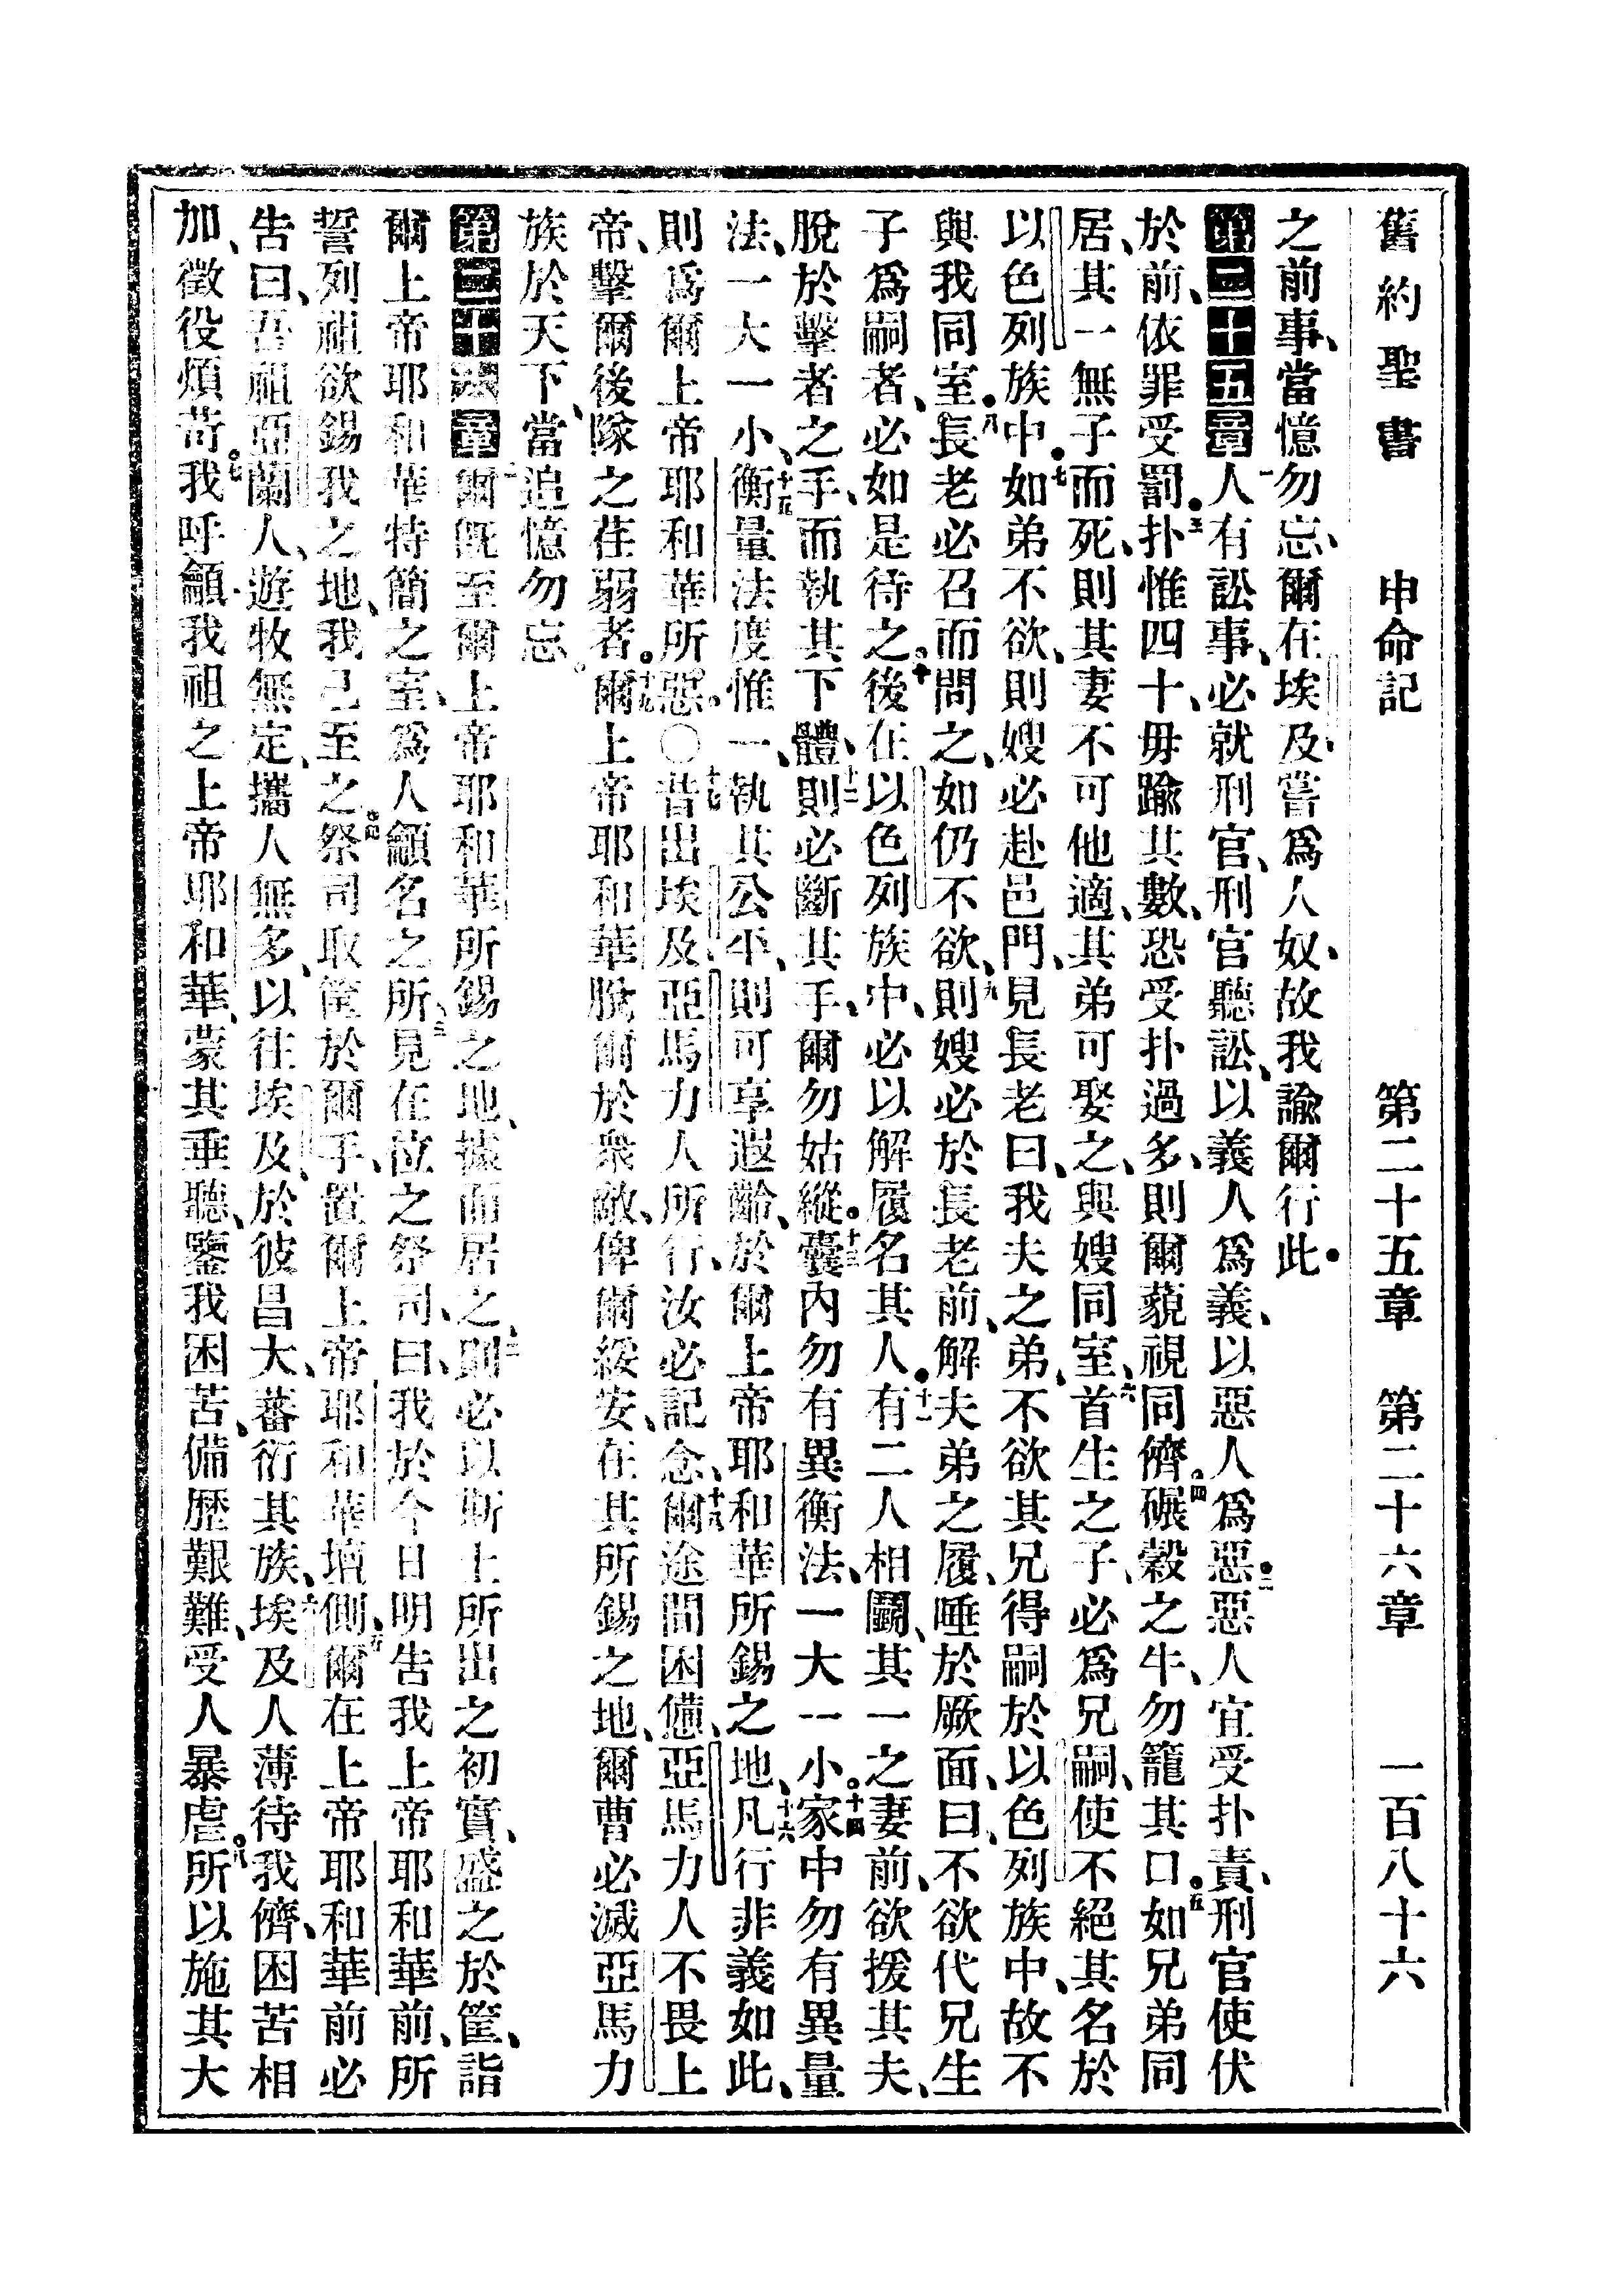 舊約聖書 申命記 第二十五章 第二十六章 一百八十六
之前事、當憶勿忘、爾在埃及、嘗爲人奴、故我諭爾行此。
第二十五章 一人有訟事、必就刑官、刑官聽訟、以義人爲義、以惡人爲惡。二惡人宜受扑責、刑官使伏
於前、依罪受罰。三扑惟四十、毋踰其數、恐受扑過多、則爾藐視同儕。四碾穀之牛、勿籠其口。五如兄弟同
居、其一無子而死、則其妻不可他適、其弟可娶之、與嫂同室、六首生之子、必爲兄嗣、使不絕其名於
以色列族中。七如弟不欲、則嫂必赴邑門、見長老曰、我夫之弟、不欲其兄得嗣於以色列族中、故不
與我同室。八長老必召而問之、如仍不欲、九則嫂必於長老前、解夫弟之履、唾於厥面、曰、不欲代兄生
子爲嗣者、必如是待之。十後在以色列族中、必以解履名其人。十一有二人相鬭、其一之妻前、欲援其夫、
脫於擊者之手、而執其下體、十二則必斷其手、爾勿姑縱。十三囊內勿有異衡法、一大一小。十四家中勿有異量
法、一大一小、十五衡量法度惟一、執其公平、則可享遐齡、於爾上帝耶和華所錫之地、十六凡行非義如此、
則爲爾上帝耶和華所惡。〇十七昔出埃及、亞馬力人所行、汝必記念、十八爾途間困憊、亞馬力人不畏上
帝、擊爾後隊之荏弱者。十九爾上帝耶和華脫爾於衆敵、俾爾綏安、在其所錫之地、爾曹必滅亞馬力
族於天下、當追憶勿忘。
第二十六章 一爾旣至爾上帝耶和華所錫之地、據而居之、二則必以斯土所出之初實、盛之於筐、詣
爾上帝耶和華特簡之室、爲人籲名之所、三見在位之祭司、曰、我於今日明告我上帝耶和華前、所
誓列祖欲錫我之地、我已至之。四祭司取筐於爾手、置爾上帝耶和華壇側、五爾在上帝耶和華前必
告曰、吾祖亞蘭人、遊牧無定、攜人無多、以往埃及、於彼昌大、蕃衍其族、六埃及人薄待我儕、困苦相
加、徵役煩苛。七我呼籲我祖之上帝耶和華、蒙其垂聽、鑒我困苦、備歷艱難、受人暴虐。八所以施其大